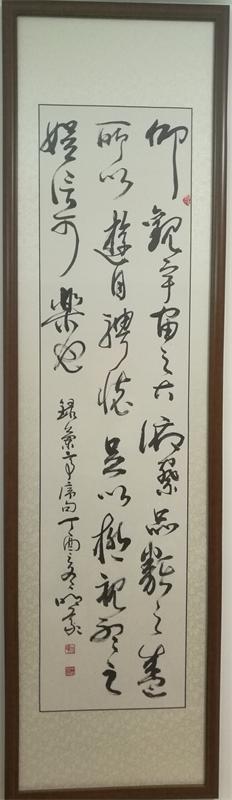 仰觀宇宙之大俯察品類之盛
所以遊目騁懷足以極視聽之
娱信可樂也
録蘭亭序句丁酉之冬